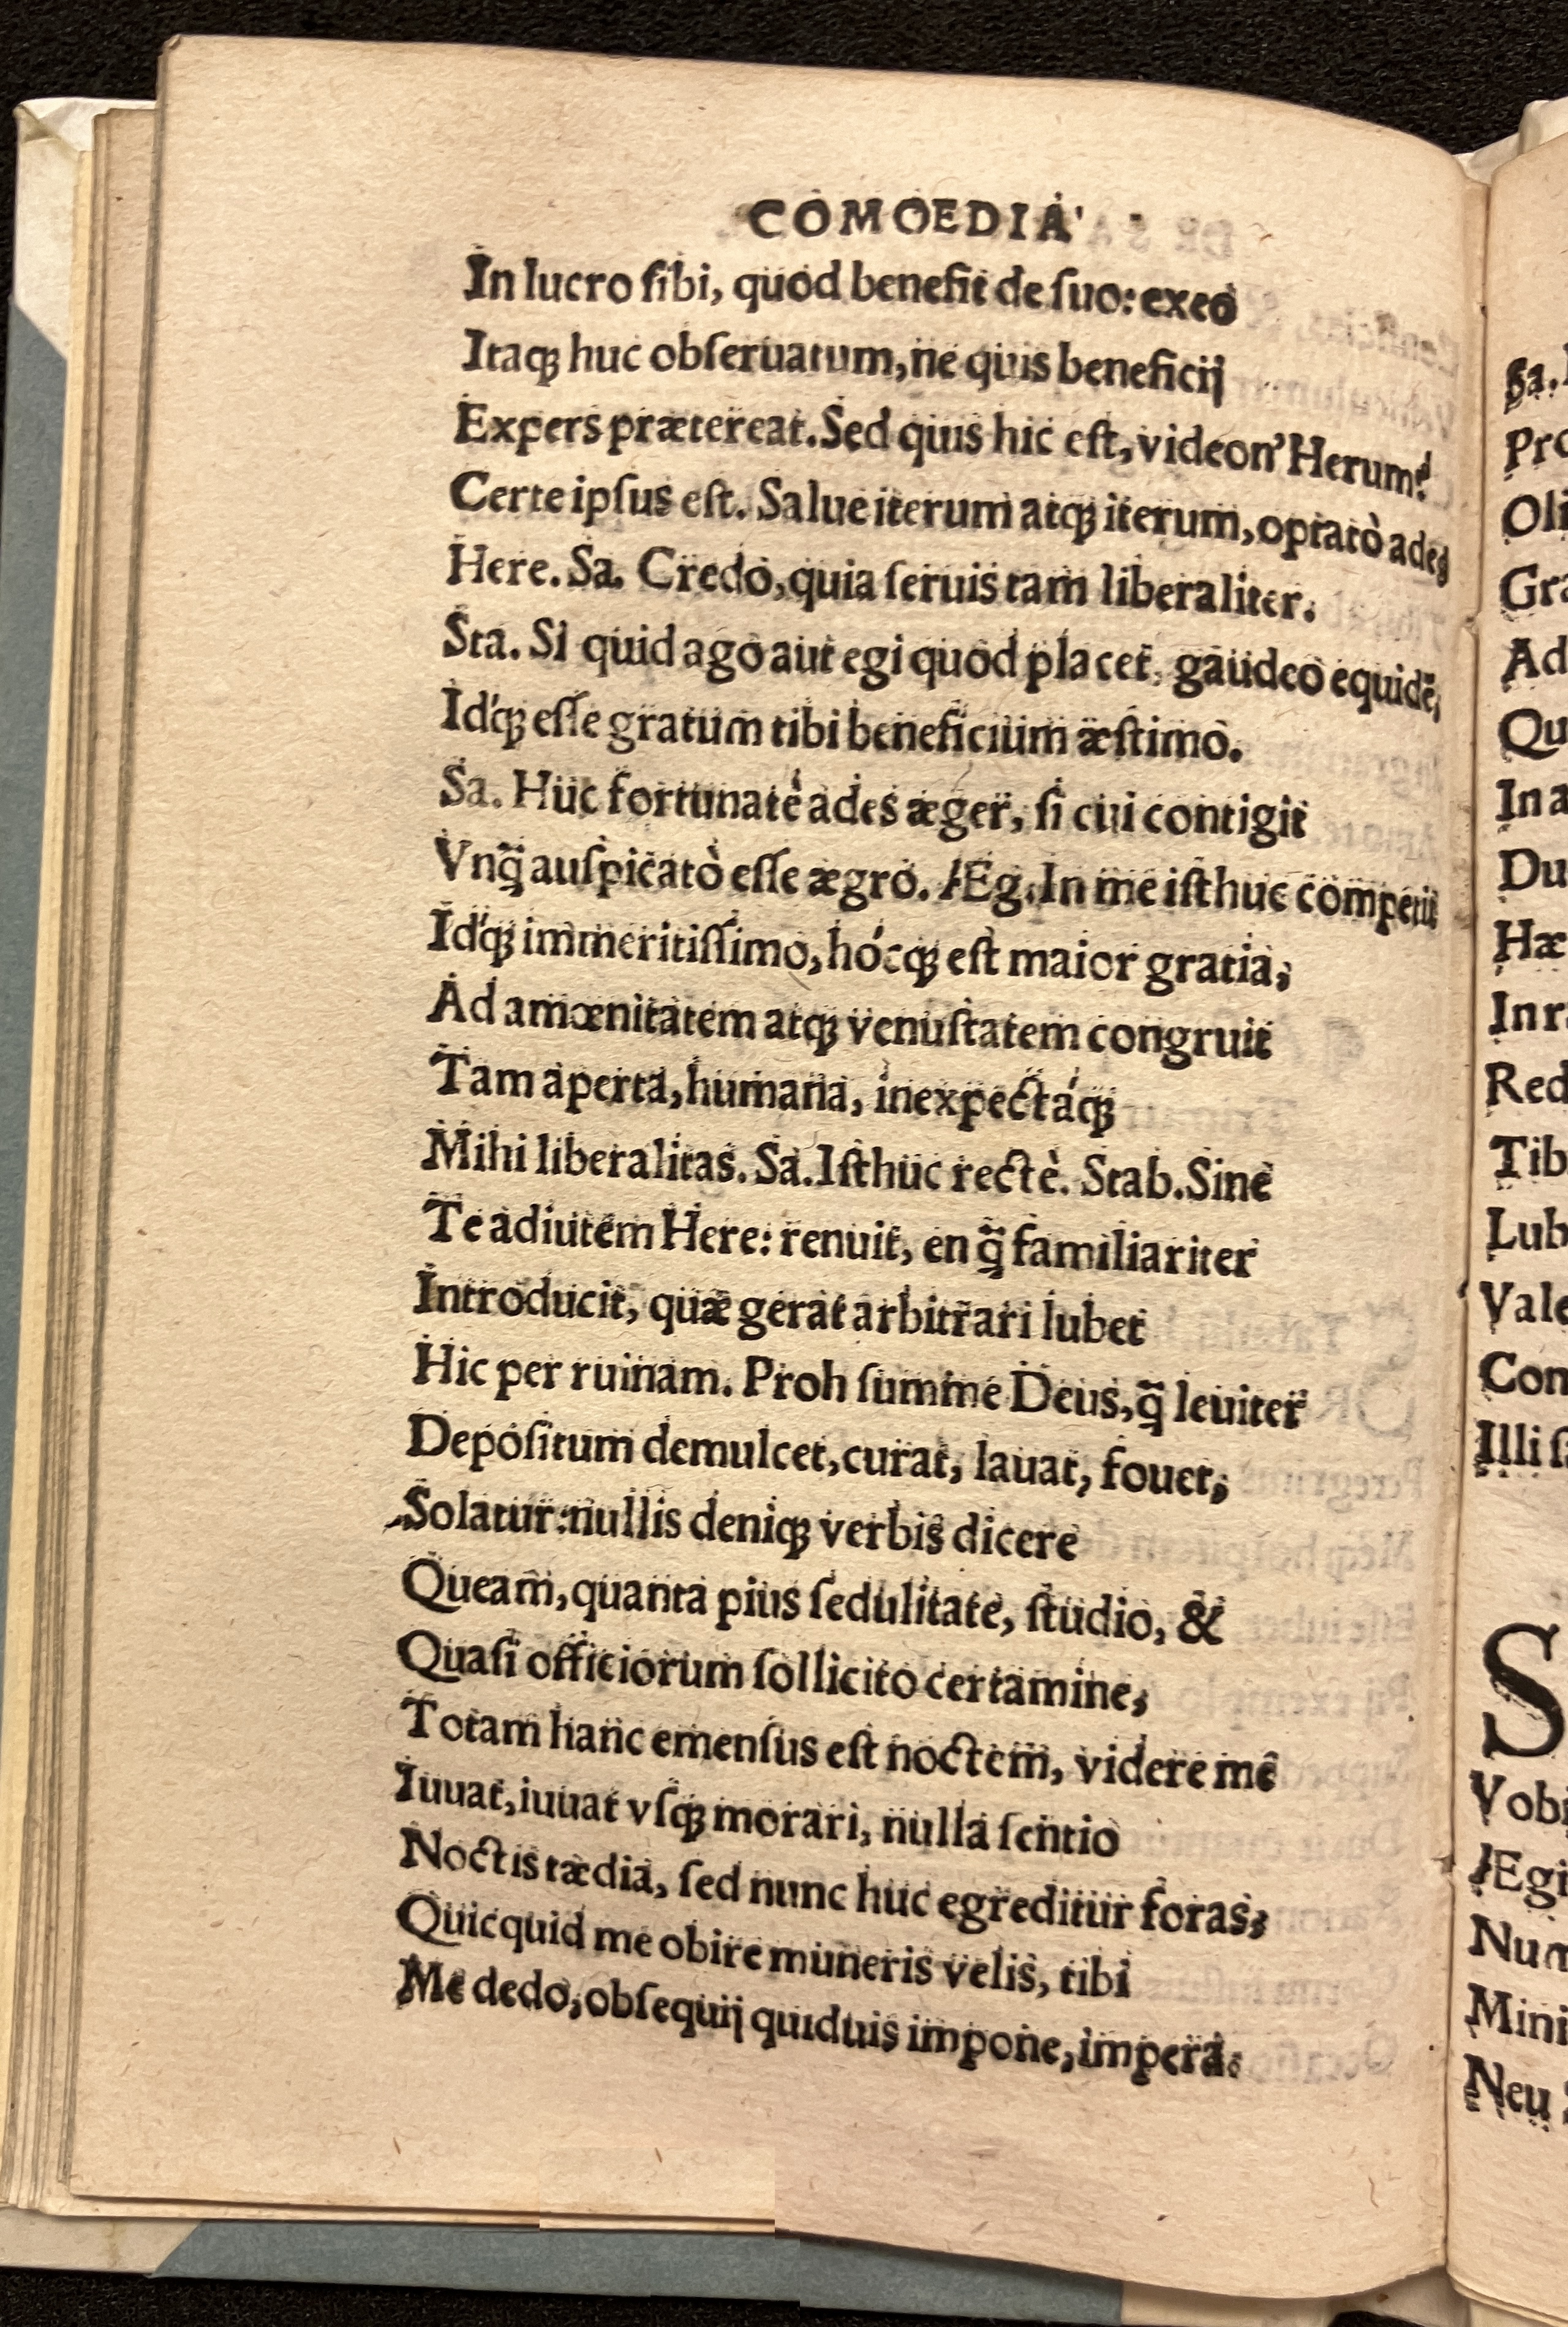 COMOEDIA
In lucro ſibi, quod benefit de ſuo: exeo
Itaqꝫ huc obſeruatum, ne quis beneficij
Expers prætereat. Sed quis hic eſt, videon' Herum?
Certe ipſus eſt. Salue iterum atqꝫ iterum, optatò ades
Here. Sa. Credo, quia ſeruis tam liberaliter.
Sta. Si quid ago aut egi quod placet, gaudeo equidē,
Id'qꝫ eſſe gratum tibi beneficium æſtimo.
Sa. Huc fortunatè ades æger, ſi cui contigit
Vnq̃ auſpicatò eſſe ægro. Æg. In me iſthuc comperit
Id'qꝫ immeritiſſimo, hócqꝫ eſt maior gratia,
Ad amœnitatem atqꝫ venuſtatem congruit
Tam aperta, humana, inexpectáqꝫ
Mihi liberalitas. Sa. Iſthuc rectè. Stab. Sine
Te adiutem Here: renuit, en q̃ familiariter
Introducit, quæ gerat arbitrari lubet
Hic per ruinam. Proh ſumme Deus, q̃ leuiter
Depoſitum demulcet, curat, lauat, fouet,
Solatur: nullis deniqꝫ verbis dicere
Queam, quanta pius ſedulitate, ſtudio, &
Quaſi officiorum ſollicito certamine,
Totam hanc emenſus eſt noctem, videre me
Iuuat, iuuat vſqꝫ morari, nulla ſentio
Noctis tædia, ſed nunc huc egreditur foras,
Quicquid me obire muneris velis, tibi
Me dedo, obſequij quiduis impone, impera.
Sa.
Oli
Gra
Ad
Qu
In a
Du
Hæ
In r
Red
Tib
Lub
Vale
Con
Illi ſ
S
Vobi
Ægi
Num
Mini
Neu